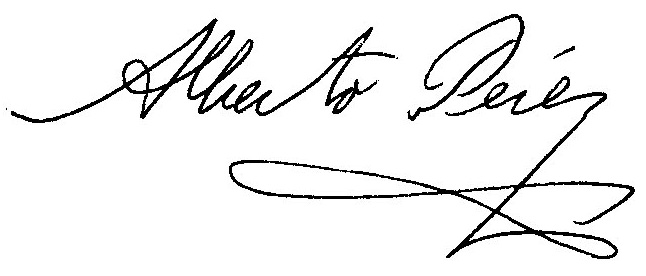 Alberto Pérez